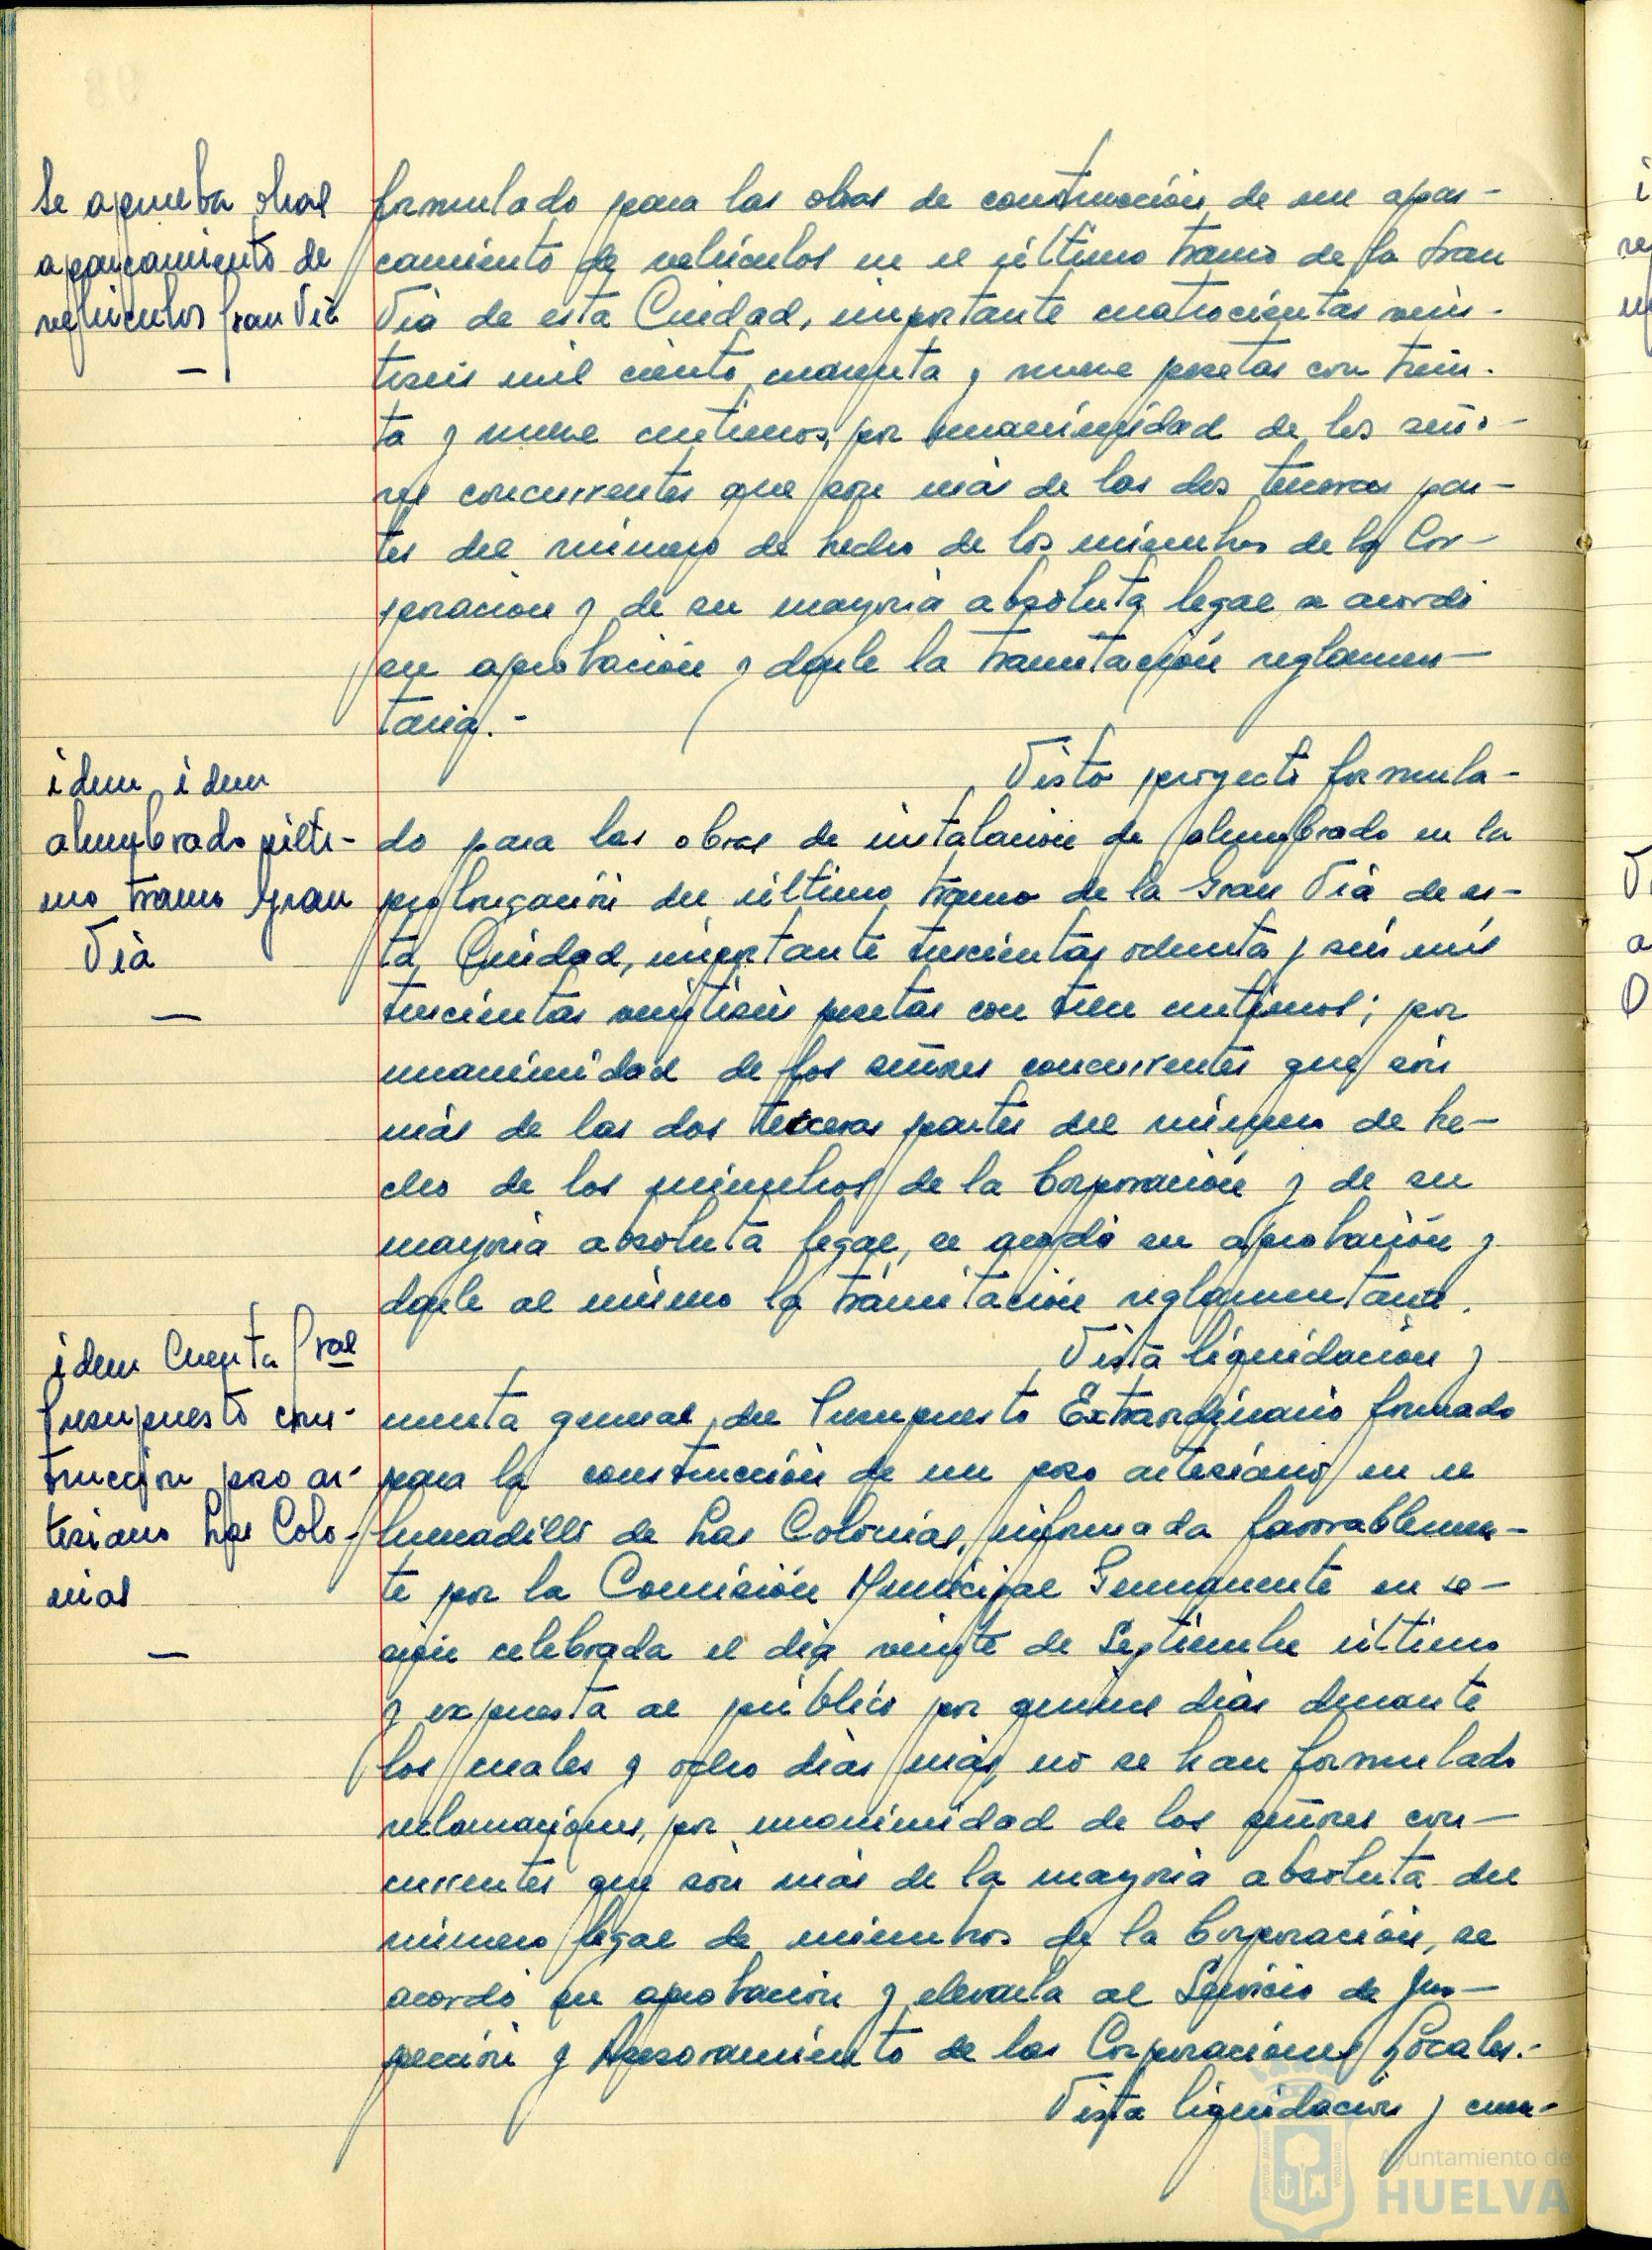 Se aprueba obras
aparcamiento de
vehículos Gran Vía
formulado para las obras de construcción de un apar-
camiento de vehículos en el último tramo de la Gran
Vía de esta Ciudad, importante cuatrocientas vein-
tiseis mil ciento cuarenta y nueve pesetas con trein-
ta y nueve centimos, por unanimidad de los seño-
res concurrentes que son más de las dos terceras par-
tes del número de hecho de los miembros de la Cor-
poración y de su mayoría absoluta legal se acordó
su aprobación y darle la tramitación reglamen-
taria.-
idem idem
alumbrado últi-
mo tramo Gran
Vía
Visto proyecto formula-
do para las obras de instalación de alumbrado en la
prolongación del último tramo de la Gran Vía de es-
ta Ciudad, importante trescientas ochenta y seis mil
trescientas veintiseis pesetas con trece centimos; por
unanimidad de los señores concurrentes que son
más de las dos terceras partes del número de he-
cho de los miembros de la Corporación y de su
mayoría absoluta legal, se acordó su aprobación y
darle al mismo la tramitación reglamentaria.
idem Cuenta Gral
Presupuesto cons-
trucción pozo ar-
tesiano Las Colo-
nias
Vista liquidación y
cuenta general del Presupuesto Extraordinario formado
para la construcción de un pozo artesiano en el
Humadillo de Las Colonias, informada favorablemen-
te por la Comisión Municipal Permanente en se-
sión celebrada el día veinte de Septiembre último
y expuesta al público por quince días durante
los cuales y ocho días más, no se han formulado
reclamaciones, por unanimidad de los señores con-
currentes que son más de la mayoría absoluta del
número legal de miembros de la Corporación, se
acordó su aprobación y elevarla al Servicio de Ins-
pección y Asesoramiento de las Corporaciones Locales.-
Vista liquidación y cuen-
Ayuntamiento de
HUELVA